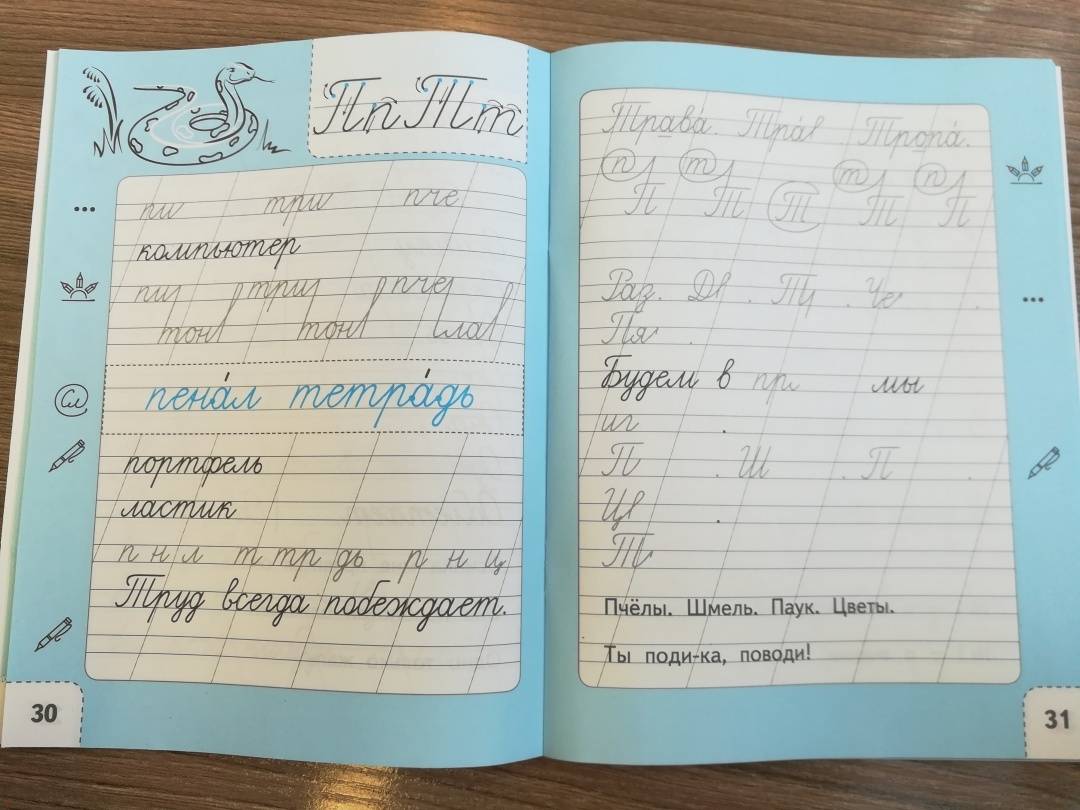 Пп Тт
пи три пче
компьютер
пи три пче
тон тон
пенал тетрадь
портфель
ластик
п н л т тр дь р н ц
Труд всегда побеждает.
30
Трава. Трав Тропа.
п т т п
П Т Т Т П
Раз. Дв . Тр . Че .
Пя .
Будем в пр мы
иг .
П . Ш . П .
Цв .
Т
Пчёлы. Шмель. Паук. Цветы.
Ты поди-ка, поводи!
31